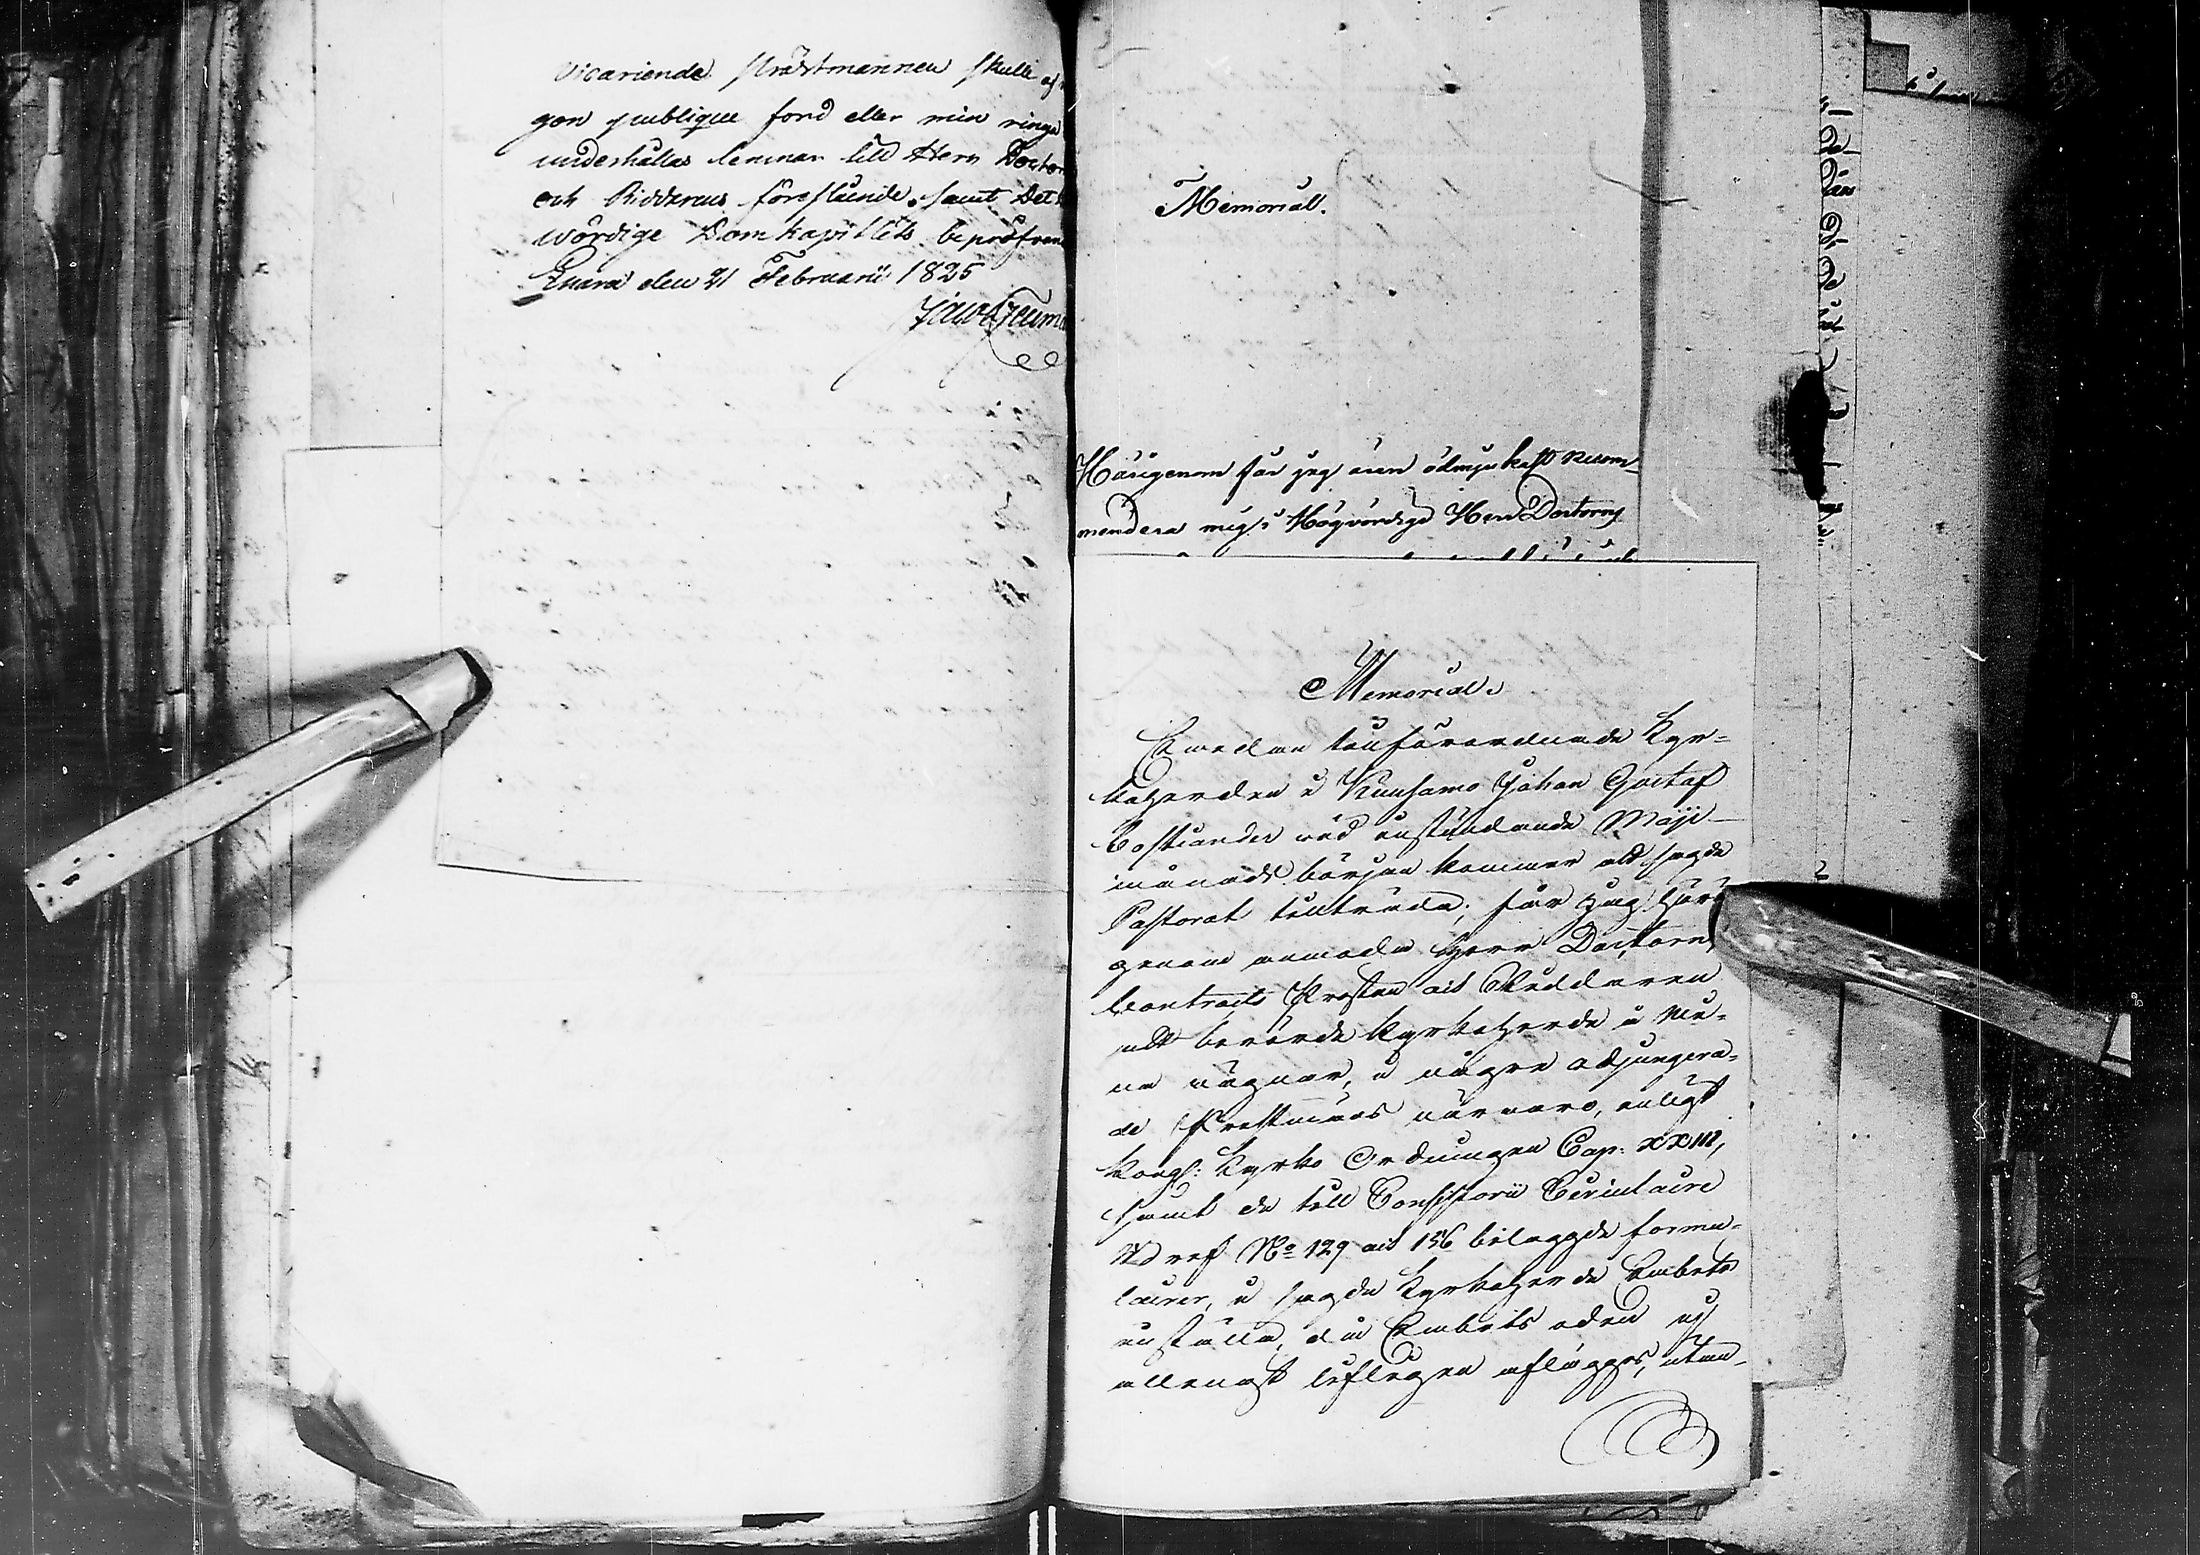 vicariende Prästmannen skulle af n
gon publique fond eller min ringa
underhållas lemnar till Herr Doctor
och Riddarens förestående samt Det
wördige Domkapitlets bepröfvan
Enara den 21 Februarii 1825
Memorial.
Härigenom får jag även ödmjukast recom-
mendera mig i Högvördige Herr Doctorns
Memorial.
Emedan tillförordnade Kyr-
koherden i Kuusamo Johan Gustaf
Costiander wid instundande Maji
månads början kommer att sagde
Pastorat tillträda; får jag här-
genom anmoda Herr Doctorn,
Contracts Prosten och Riddaren
att berörde Kyrkoherde i mi-
na wägnar, i några adjungera-
de Prestmäns närvaro, enligt
Kongl: Kyrko Ordningen Cap: XXIII,
samt de till Consistorii Circulaire
Bref No 129 och 156 bilaggde formu-
lairer, i sagde Kyrkoherde Embete
inställa, då Embets eden ej
allenast lifligen aflägges, utan